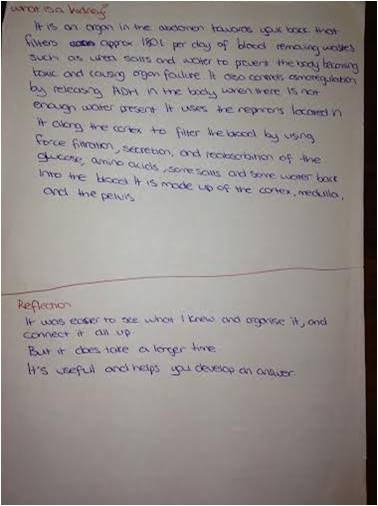 What is a kidney?
It is an organ in the abdomen towards your back that
filters approx 180l per day of blood removing wastes
such as urea salts and water to prevent the body becoming
toxic and causing organ failure. It also controls osmoregulation
by releasing ADH in the body when there is not
enough water present. It uses the nephrons located in
it along the cortex to filter the blood by using
force filtration, secretion, and reabsorbtion of the
glucose, amino acids, some salts and some water back
into the blood. It is made up of the cortex, medulla,
and the pelvis
Reflection
It was easier to see what I knew and organise it, and
connect it all up.
But it does take a longer time.
It's useful and helps you develop an answer.